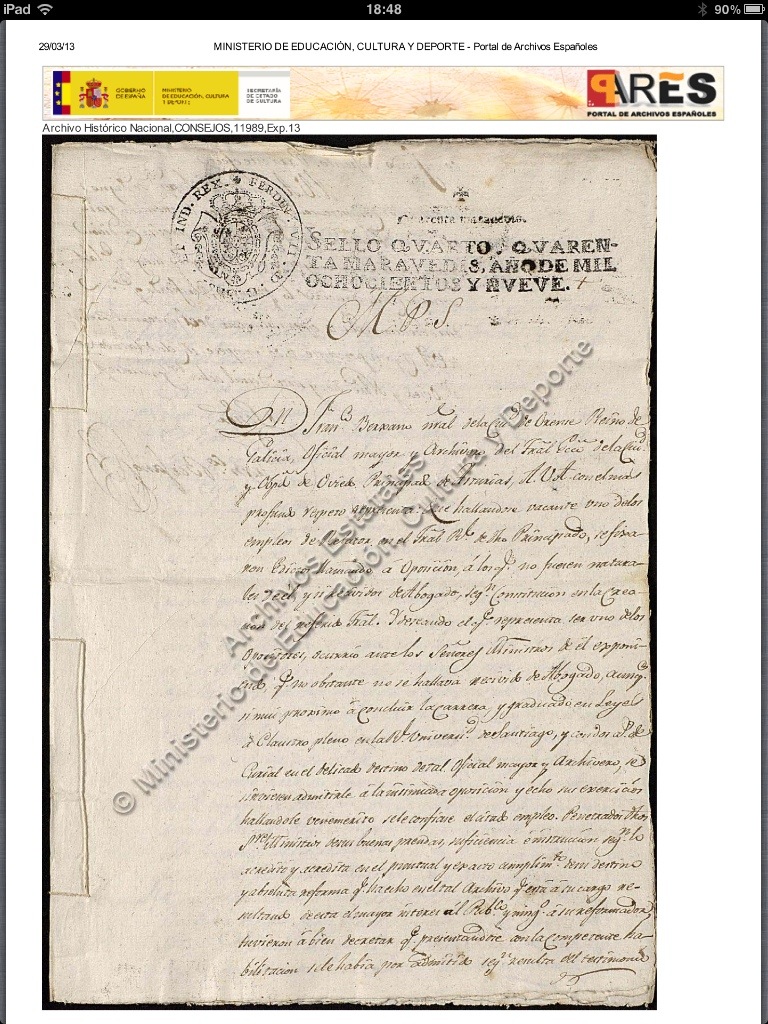 iPad 18:48 90%
29/03/13 MINISTERIO DE EDUCACIÓN, CULTURA Y DEPORTE - Portal de Archivos Españoles
GOBIERNO DE ESPAÑA MINISTERIO DE EDUCACIÓN, CULTURA Y DEPORTE SECRETARÍA DE ESTADO DE CULTURA
PARES
PORTAL DE ARCHIVOS ESPAÑOLES
Archivo Histórico Nacional,CONSEJOS,11989,Exp.13
ET IND. REX. FERDIN. VII D. G.
SELLO QVARTO, QVAREN-
TA MARAVEDIS, AÑO DE MIL
OCHOCIENTOS Y NVEVE.
M. P. S.
Dn Franco nral. dela Ciud de Orense Reino de
Galicia, Oficial mayor y Archivero del Tral de la Ciud
y Obpdo de Oviedo Principado de Asturias, A. V.A. con el mas
profundo respeto representa: Que hallandose vacante uno delos
empleos de Relator en el Tral Rl. de dho Principado, se fixa
ron Edictos llamando á Oposicion, á los qe. no fuesen natura
les de el, y si recividos de Abogado, segn Constitucion en la Crea
cion del referido Tral. Y deseando el qe. representa ser uno delos
Opositores, ocurrió ante los Señores Ministros de él exponi-
endo qe. no obstante no se hallava recivido de Abogado, aunqe.
si mui proximo á concluir la carrera, y graduado en Leyes
á Claustro pleno en la Rl. Universd. de Santiago, y con
Curial en el delicado destino de tal Oficial mayor y Archivero, se
sirviesen admitirle á la oposicion y echo sus exercicios
hallandole venemerito se le confiriese el citado empleo. Penetrados dhos
Sres. Ministros de sus buenas prendas, suficiencia é instruccion segn. lo
acreditó y acredita en el puntual y exacto cumplimto. de su destino
y absoluta reforma qe. ha echo en el tal Archivo qe. está á su cargo re-
sultando de esta el mayor interes al Pubco. y ningo. á su reformador,
tuvieron á bien decretar qe. presentandose con la competente ha-
bilitacion se le habia por admitido segn. resulta del testimonio
© Ministerio de Educación, Cultura y Deporte
Archivos Estatales